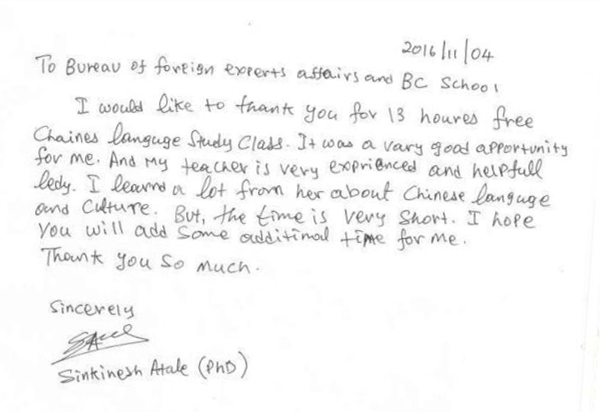 2016/11/04
To Bureau of foreign experts affairs and BC School
I would like to thank you for 13 houres free
Chaines languge Study Class. It was a vary good apportunity
for me. And My teacher is very exprienced and helpfull
ledy. I learnd a lot from her about Chinese languge
and Culture. But, the time is very short. I hope
you will add some additimal time for me.
Thank you so much.
Sincerely
Sinkinesh Atale (PhD)